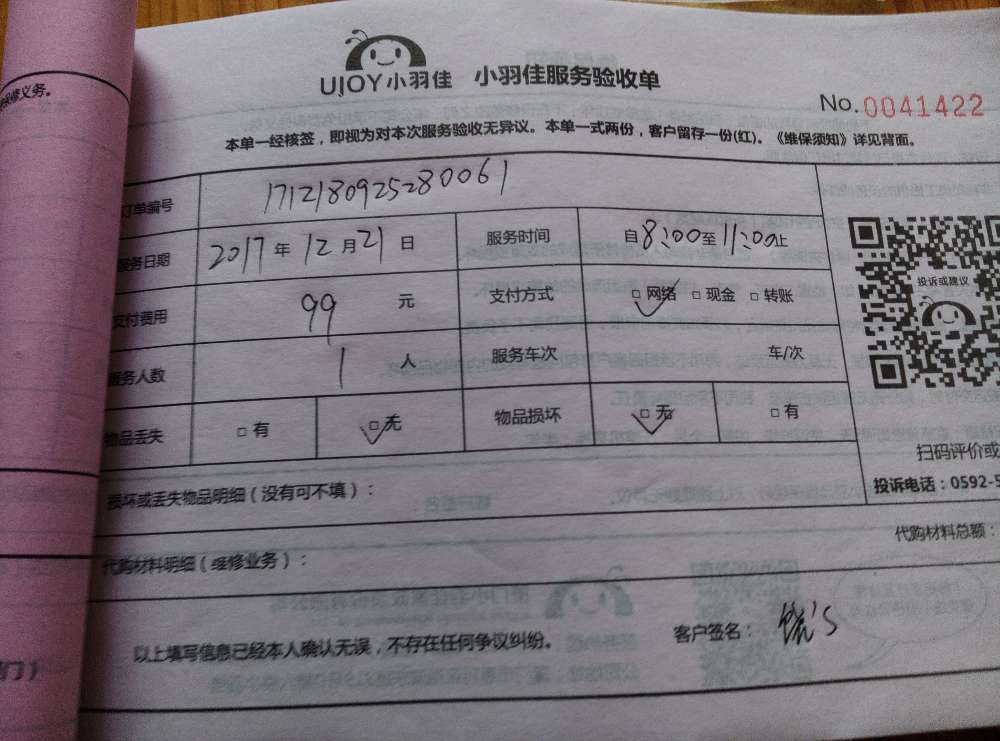 保修义务。
UJOY小羽佳 小羽佳服务验收单
No. 0041422
本单一经核签，即视为对本次服务验收无异议。本单一式两份，客户留存一份(红)。《维保须知》详见背面。
订单编号 1712180925280061
服务日期 2017年12月21日 服务时间 自8:00至11:00止
支付费用 99 元 支付方式 □网络 □现金 □转账
服务人数 1 人 服务车次 车/次
物品丢失 □有 □无 物品损坏 □无 □有
投诉或建议
扫码评价或
投诉电话：0592-5
损坏或丢失物品明细（没有可不填）：
代购材料总额：
代购材料明细（维修业务）：
以上填写信息已经本人确认无误，不存在任何争议纠纷。 客户签名：饶's
门）